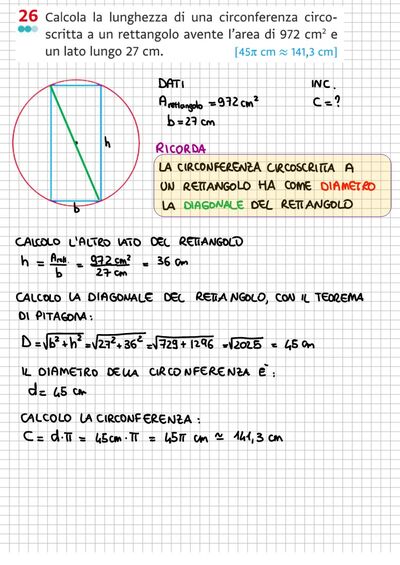 26 Calcola la lunghezza di una circonferenza circo-
scritta a un rettangolo avente l'area di 972 cm² e
un lato lungo 27 cm. [45π cm ≈ 141,3 cm]
DATI INC.
A rettangolo = 972 cm² C = ?
b = 27 cm
RICORDA
LA CIRCONFERENZA CIRCOSCRITTA A
UN RETTANGOLO HA COME DIAMETRO
LA DIAGONALE DEL RETTANGOLO
h
b
CALCOLO L'ALTRO LATO DEL RETTANGOLO
h = Arett. / b = 972 cm² / 27 cm = 36 cm
CALCOLO LA DIAGONALE DEL RETTANGOLO, CON IL TEOREMA
DI PITAGORA:
D = √b² + h² = √27² + 36² = √729 + 1296 = √2025 = 45 cm
IL DIAMETRO DELLA CIRCONFERENZA È:
d = 45 cm
CALCOLO LA CIRCONFERENZA:
C = d·π = 45cm·π = 45π cm ≃ 141,3 cm